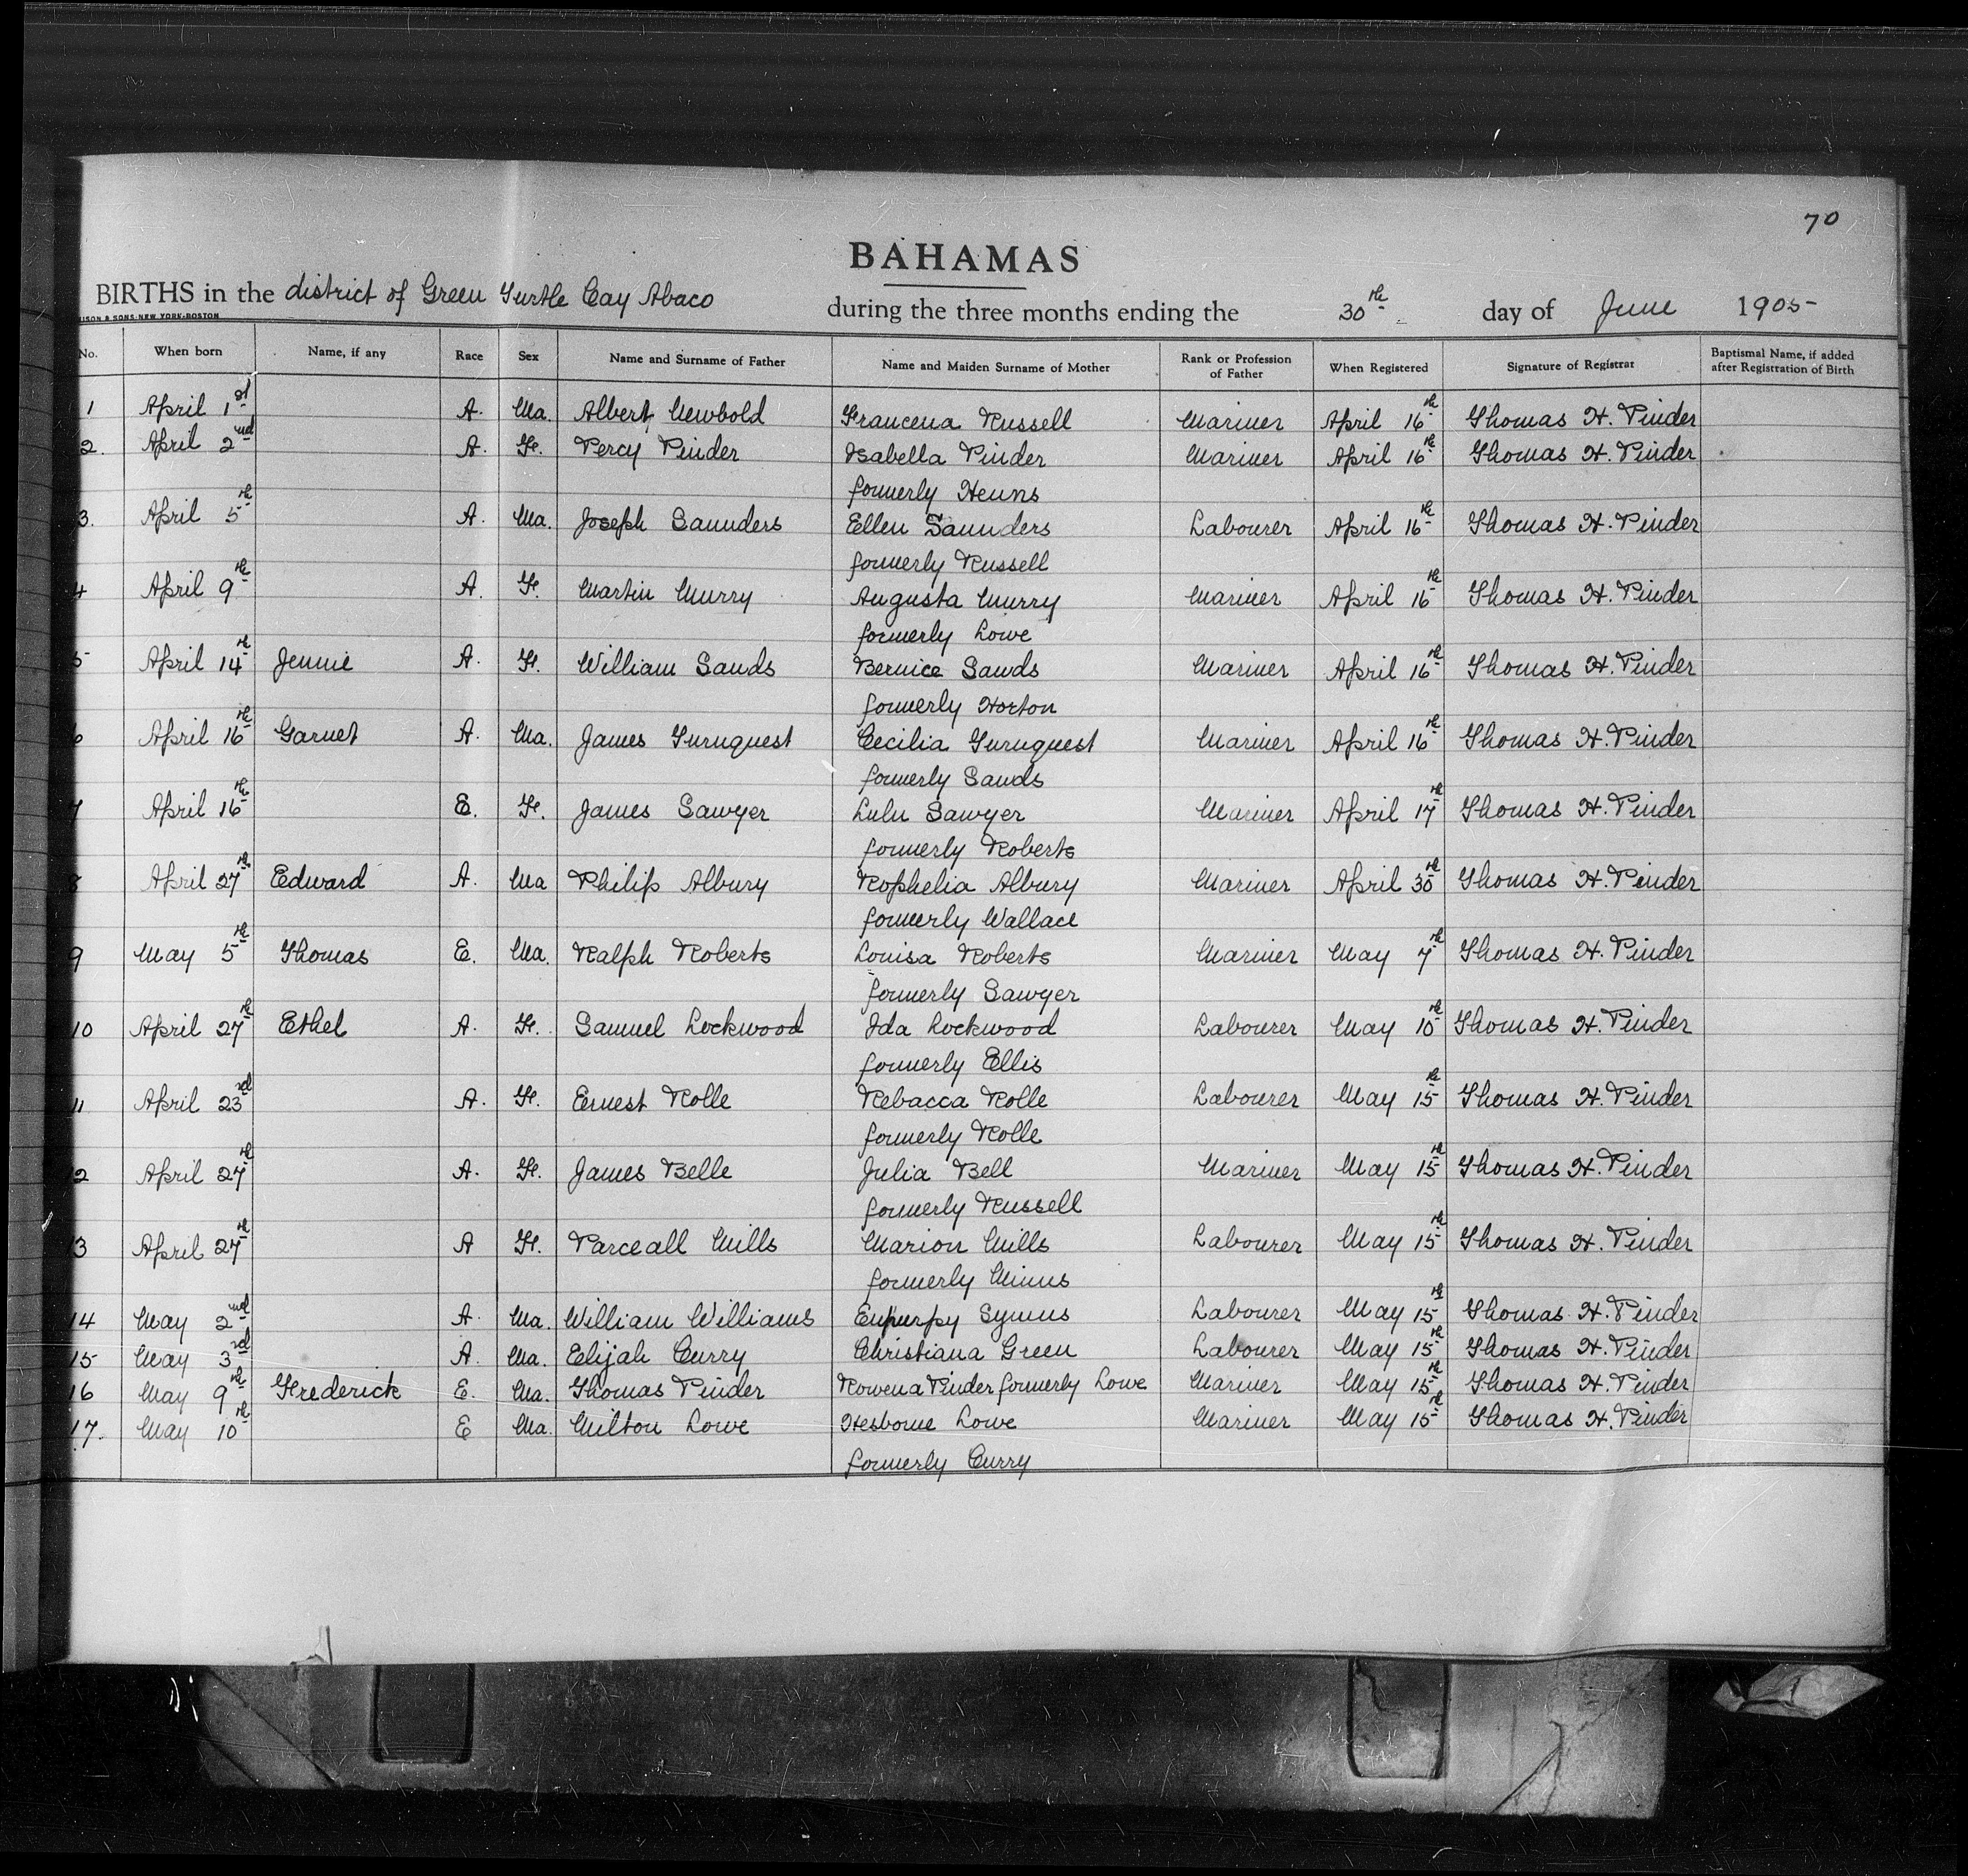 70
BAHAMAS
BIRTHS in the district of Green Turtle Cay Abaco during the three months ending the 30th day of June 1905
ISON & SONS-NEW YORK-BOSTON
No. When born Name, if any Race Sex Name and Surname of Father Name and Maiden Surname of Mother Rank or Profession of Father When Registered Signature of Registrar Baptismal Name, if added after Registration of Birth
1 April 1st A. Ma. Albert Newbold Francena Russell Mariner April 16th Thomas H. Pinder
2. April 2nd A. F. Percy Pinder Isabella Pinder Mariner April 16th Thomas H. Pinder
formerly
3. April 5th A. Ma. Joseph Saunders Ellen Saunders Labourer April 16th Thomas H. Pinder
formerly Russell
4 April 9th A. F. Martin Murry Augusta Murry Mariner April 16th Thomas H. Pinder
formerly Lowe
5 April 14th Jennie A. F. William Sands Bernice Sands Mariner April 16th Thomas H. Pinder
formerly Horton
6 April 16th Garnet A. Ma. James Turnquest Cecilia Turnquest Mariner April 16th Thomas H. Pinder
formerly Sands
7 April 16th E. F. James Sawyer Lulu Sawyer Mariner April 17th Thomas H. Pinder
formerly Roberts
8 April 27th Edward A. Ma Philip Albury Rophelia Albury Mariner April 30th Thomas H. Pinder
formerly Wallace
9 May 5th Thomas E. Ma. Ralph Roberts Louisa Roberts Mariner May 7th Thomas H. Pinder
formerly Sawyer
10 April 27th Ethel A. F. Samuel Lockwood Ida Lockwood Labourer May 10th Thomas H. Pinder
formerly Ellis
11 April 23rd A. F. Ernest Rolle Rebacca Rolle Labourer May 15th Thomas H. Pinder
formerly Rolle
2 April 27th A. F. James Belle Julia Bell Mariner May 15th Thomas H. Pinder
formerly Russell
3 April 27th A F. Parceall Mills Marion Mills Labourer May 15th Thomas H. Pinder
formerly
14 May 2nd A. Ma. William Williams Symns Labourer May 15th Thomas H. Pinder
15 May 3rd A. Ma. Elijah Curry Christiana Green Labourer May 15th Thomas H. Pinder
16 May 9th Frederick E. Ma. Thomas Pinder Rowena Pinder formerly Lowe Mariner May 15th Thomas H. Pinder
17. May 10th E Ma. Milton Lowe Lowe Mariner May 15th Thomas H. Pinder
formerly Curry